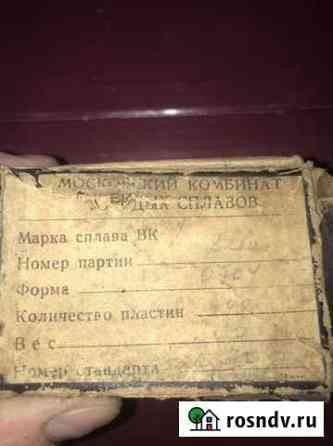 МОСКОВСКИЙ КОМБИНАТ
СПЛАВОВ
Марка сплава ВК
Номер партии
Форма
Количество пластин
Вес
Номер стандарта
rosndv.ru